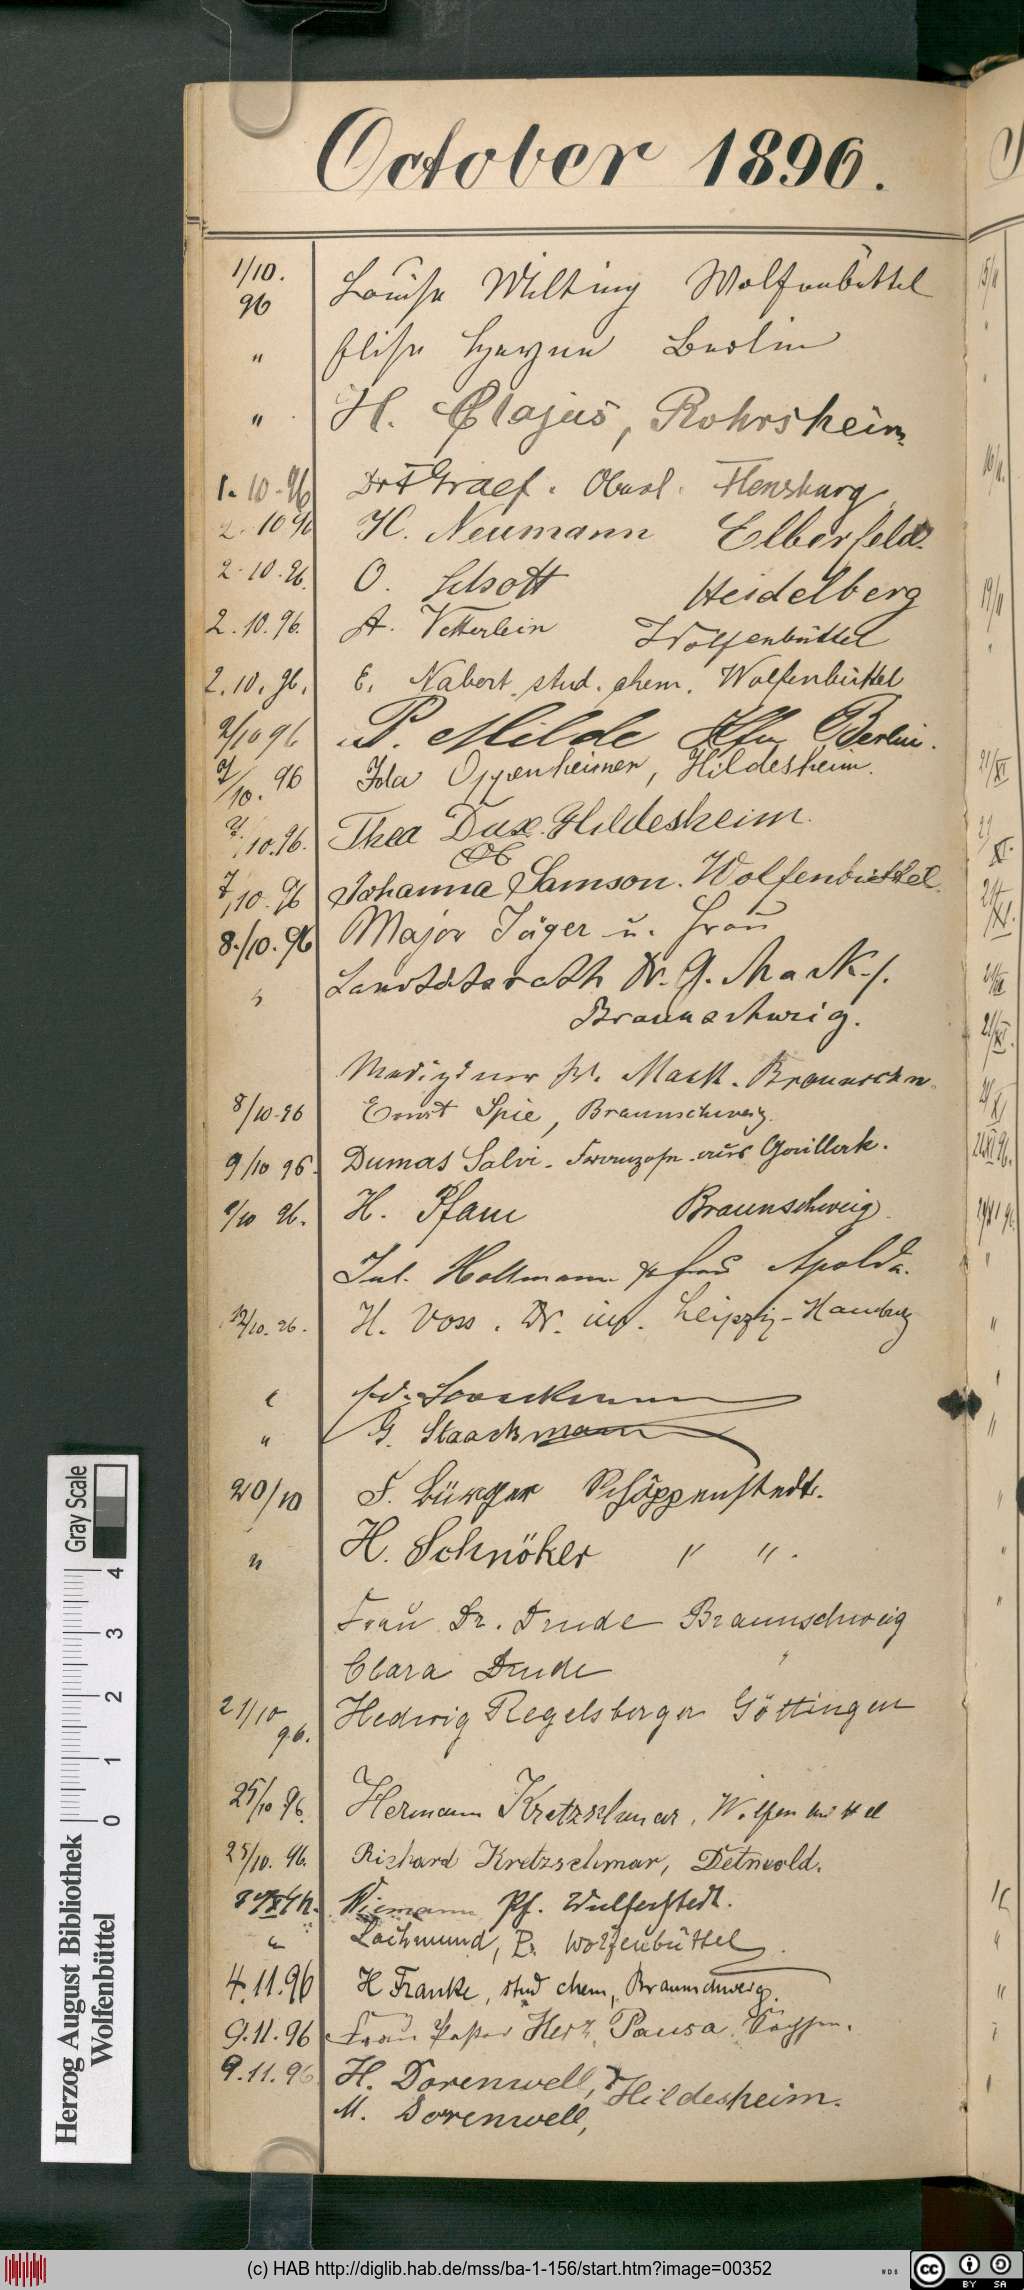 October 1896.
1/10. 96 Louise Wilting Wolfenbüttel
" Elise Berlin
" H. Clajus, Rohrsheim
1. 10. 96 Dr Graef. Oberl. Flensburg
2. 10 96 H. Neumann Elberfeld.
2. 10. 96. O. Schott Heidelberg
2. 10. 96. A. Vetterlein Wolfenbüttel
2. 10. 96. E. Nabert. stud. chem. Wolfenbüttel
2/10 96 P. Milde Berlin.
7/10. 96 Ida Oppenheimer, Hildesheim.
7/10. 96. Thea Dux. Hildesheim.
7/10. 96 Johanna Samson. Wolfenbüttel.
8./10. 96 Major Jäger u. Frau
" Dr. G. Mack
Braunschweig.
Mack. Braunschw.
8/10. 96 Ernst Spie, Braunschweig.
9/10 96. Dumas Salvi. Franzose aus
9/10 96. H. Pfau Braunschweig.
Jul. Holtmann & Frau Apolda.
12/10. 96. H. Voss. Dr. iur. Leipzig-Hamburg
" Staackmann
" G. Staackmann
20/10 F. Bürger Schöppenstedt.
" H. Schnöker " " .
Frau Dr. Drude Braunschweig
Clara Drude "
21/10 96. Hedwig Regelsberger Göttingen
25/10 96. Hermann Kretzschmar, Wolfenbüttel
25/10. 96. Richard Kretzschmar, Detmold.
Wiemann Pf. Wulferstedt.
" Lachmund, P. Wolfenbüttel.
4.11.96 H Franke, stud chem, Braunschweig.
9.11.96 Frau Pastor Herz, Pausa. Sachsen.
9.11.96 H. Dorenwell, Hildesheim.
M. Dorenwell,
Gray Scale
0 1 2 3 4
Herzog August Bibliothek
Wolfenbüttel
(c) HAB http://diglib.hab.de/mss/ba-1-156/start.htm?image=00352
cc BY SA